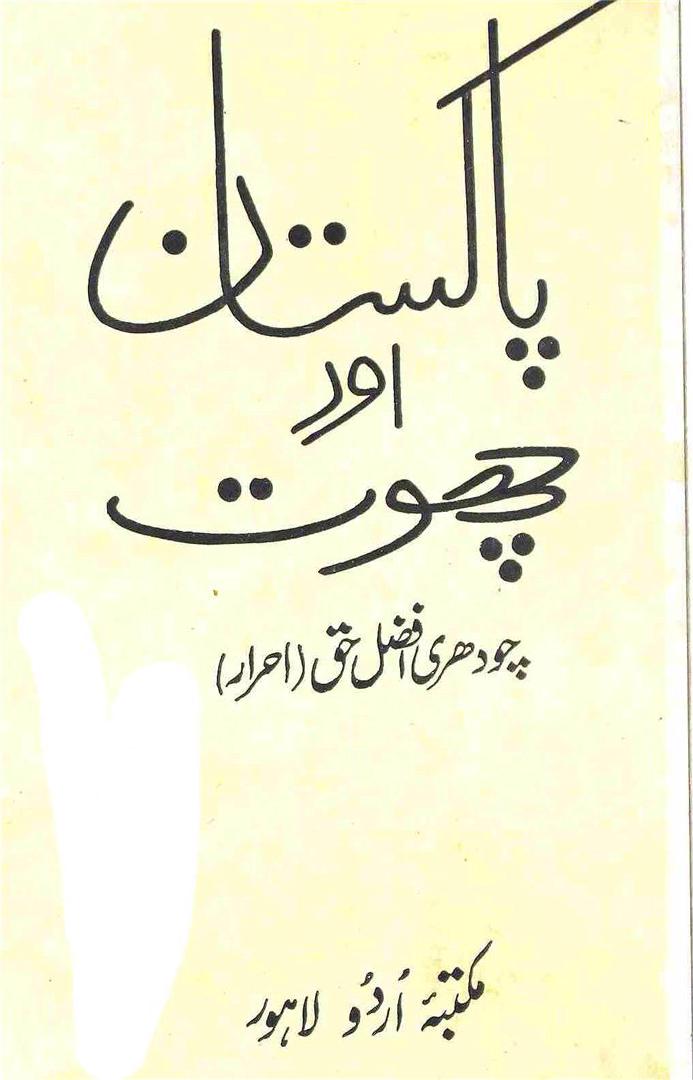 پاکستان
اور
چھوت
چودھری افضل حق (احرار)
مکتبۂ اُردُو لاہور